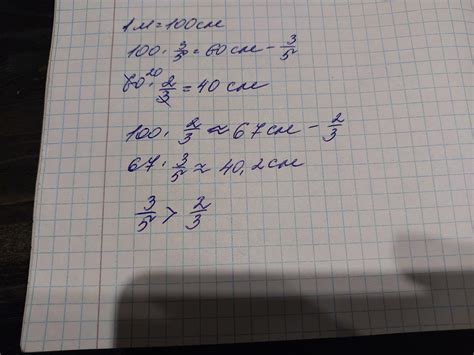 1м = 100см
100 · 3/5 = 60 см - 3/5
60 · 20 2/3 = 40 см
100 · 2/3 ≈ 67 см - 2/3
67 · 3/5 ≈ 40,2 см
3/5 > 2/3